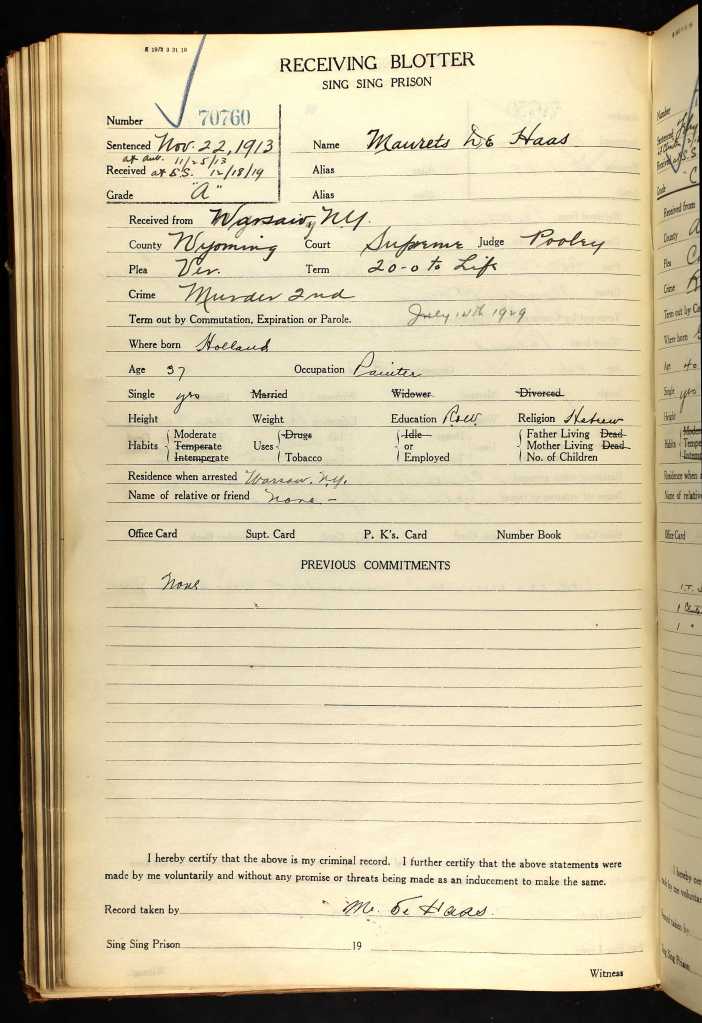 RECEIVING BLOTTER
SING SING PRISON
Number 70760
Sentenced Nov. 22, 1913 Name Maurets De Haas
at Aub. 11/25/13
Received at S.S. 12/18/19 Alias
Grade "A" Alias
Received from Warsaw, N.Y.
County Wyoming Court Supreme Judge Pooley
Plea Ver. Term 20-0 to Life
Crime Murder 2nd
Term out by Commutation, Expiration or Parole. July 1929
Where born Holland
Age 37 Occupation Painter
Single yes Married Widower Divorced
Height Weight Education R&W. Religion Hebrew
Habits Moderate Temperate Intemperate Uses Drugs Tobacco Idle or Employed Father Living Dead Mother Living Dead No. of Children
Residence when arrested Warsaw. N.Y.
Name of relative or friend None. -
Office Card Supt. Card P. K's. Card Number Book
PREVIOUS COMMITMENTS
None
I hereby certify that the above is my criminal record. I further certify that the above statements were
made by me voluntarily and without any promise or threats being made as an inducement to make the same.
Record taken by M. De Haas.
Sing Sing Prison 19
Witness
Number
Received from
County
Plea
Crime
Term out by Com
Where born
Age 40
Single yes
Height
Habits
Residence when a
Name of relative
Office Card
I hereby cer
Sing Sing Prison